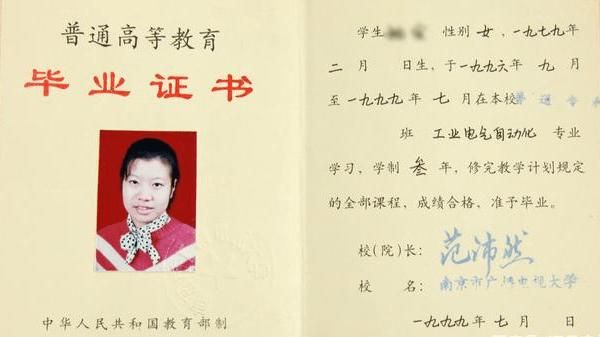 普通高等教育
毕业证书
中华人民共和国教育部制
学生 性别 女，一九七九年
二月 日生，于一九九六年 九月
至一九九九年 七月在本校普通专科
班 工业电气自动化 专业
学习，学制 叁 年，修完教学计划规定
的全部课程，成绩合格，准予毕业。
校(院)长：范沛然
校 名：南京市广播电视大学
一九九九年 七月 日